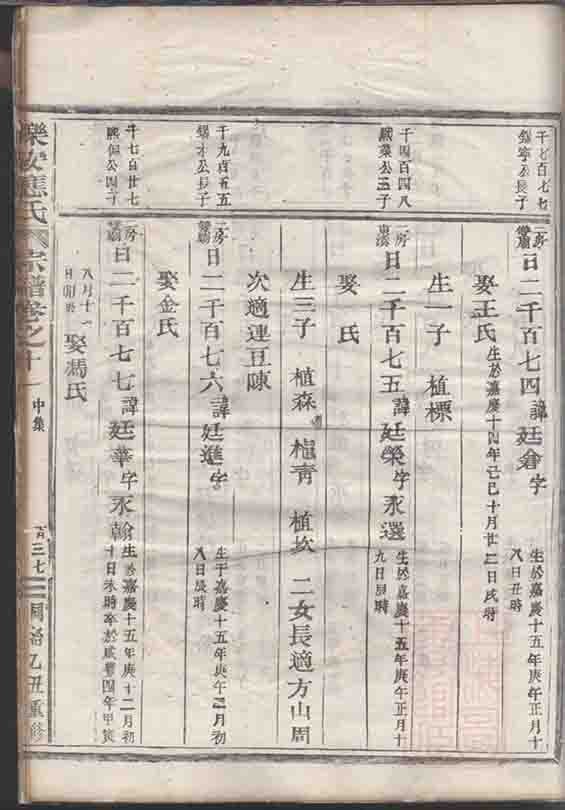 千七百七七
錫寧公長子
二房
雙廟
日二千百七四諱廷會字
生於嘉慶十五年庚午正月十
八日丑時
娶王氏
生於嘉慶十四年己巳十月廿三日戌時
生一子 植標
千四百四八
熙業公三子
二房
東溪
日二千百七五諱廷榮字永選
生於嘉慶十五年庚午正月十
九日辰時
娶 氏
生三子 植森 植青 植坎 二女長適方山周
次適連豆陳
千九百五五
錫才公長子
二房
雙廟
日二千百七六諱廷進字
生于嘉慶十五年庚午二月初
八日辰時
娶金氏
千七百廿七
熙佩公四子
二房
雙廟
日二千百七七諱廷華字永翰
生於嘉慶十五年庚十二月初
十日未時卒於咸豐四年甲寅
八月十一
日卯時
娶馮氏
樂安應氏宗譜卷之十一
中集
百三七
同治乙丑重修